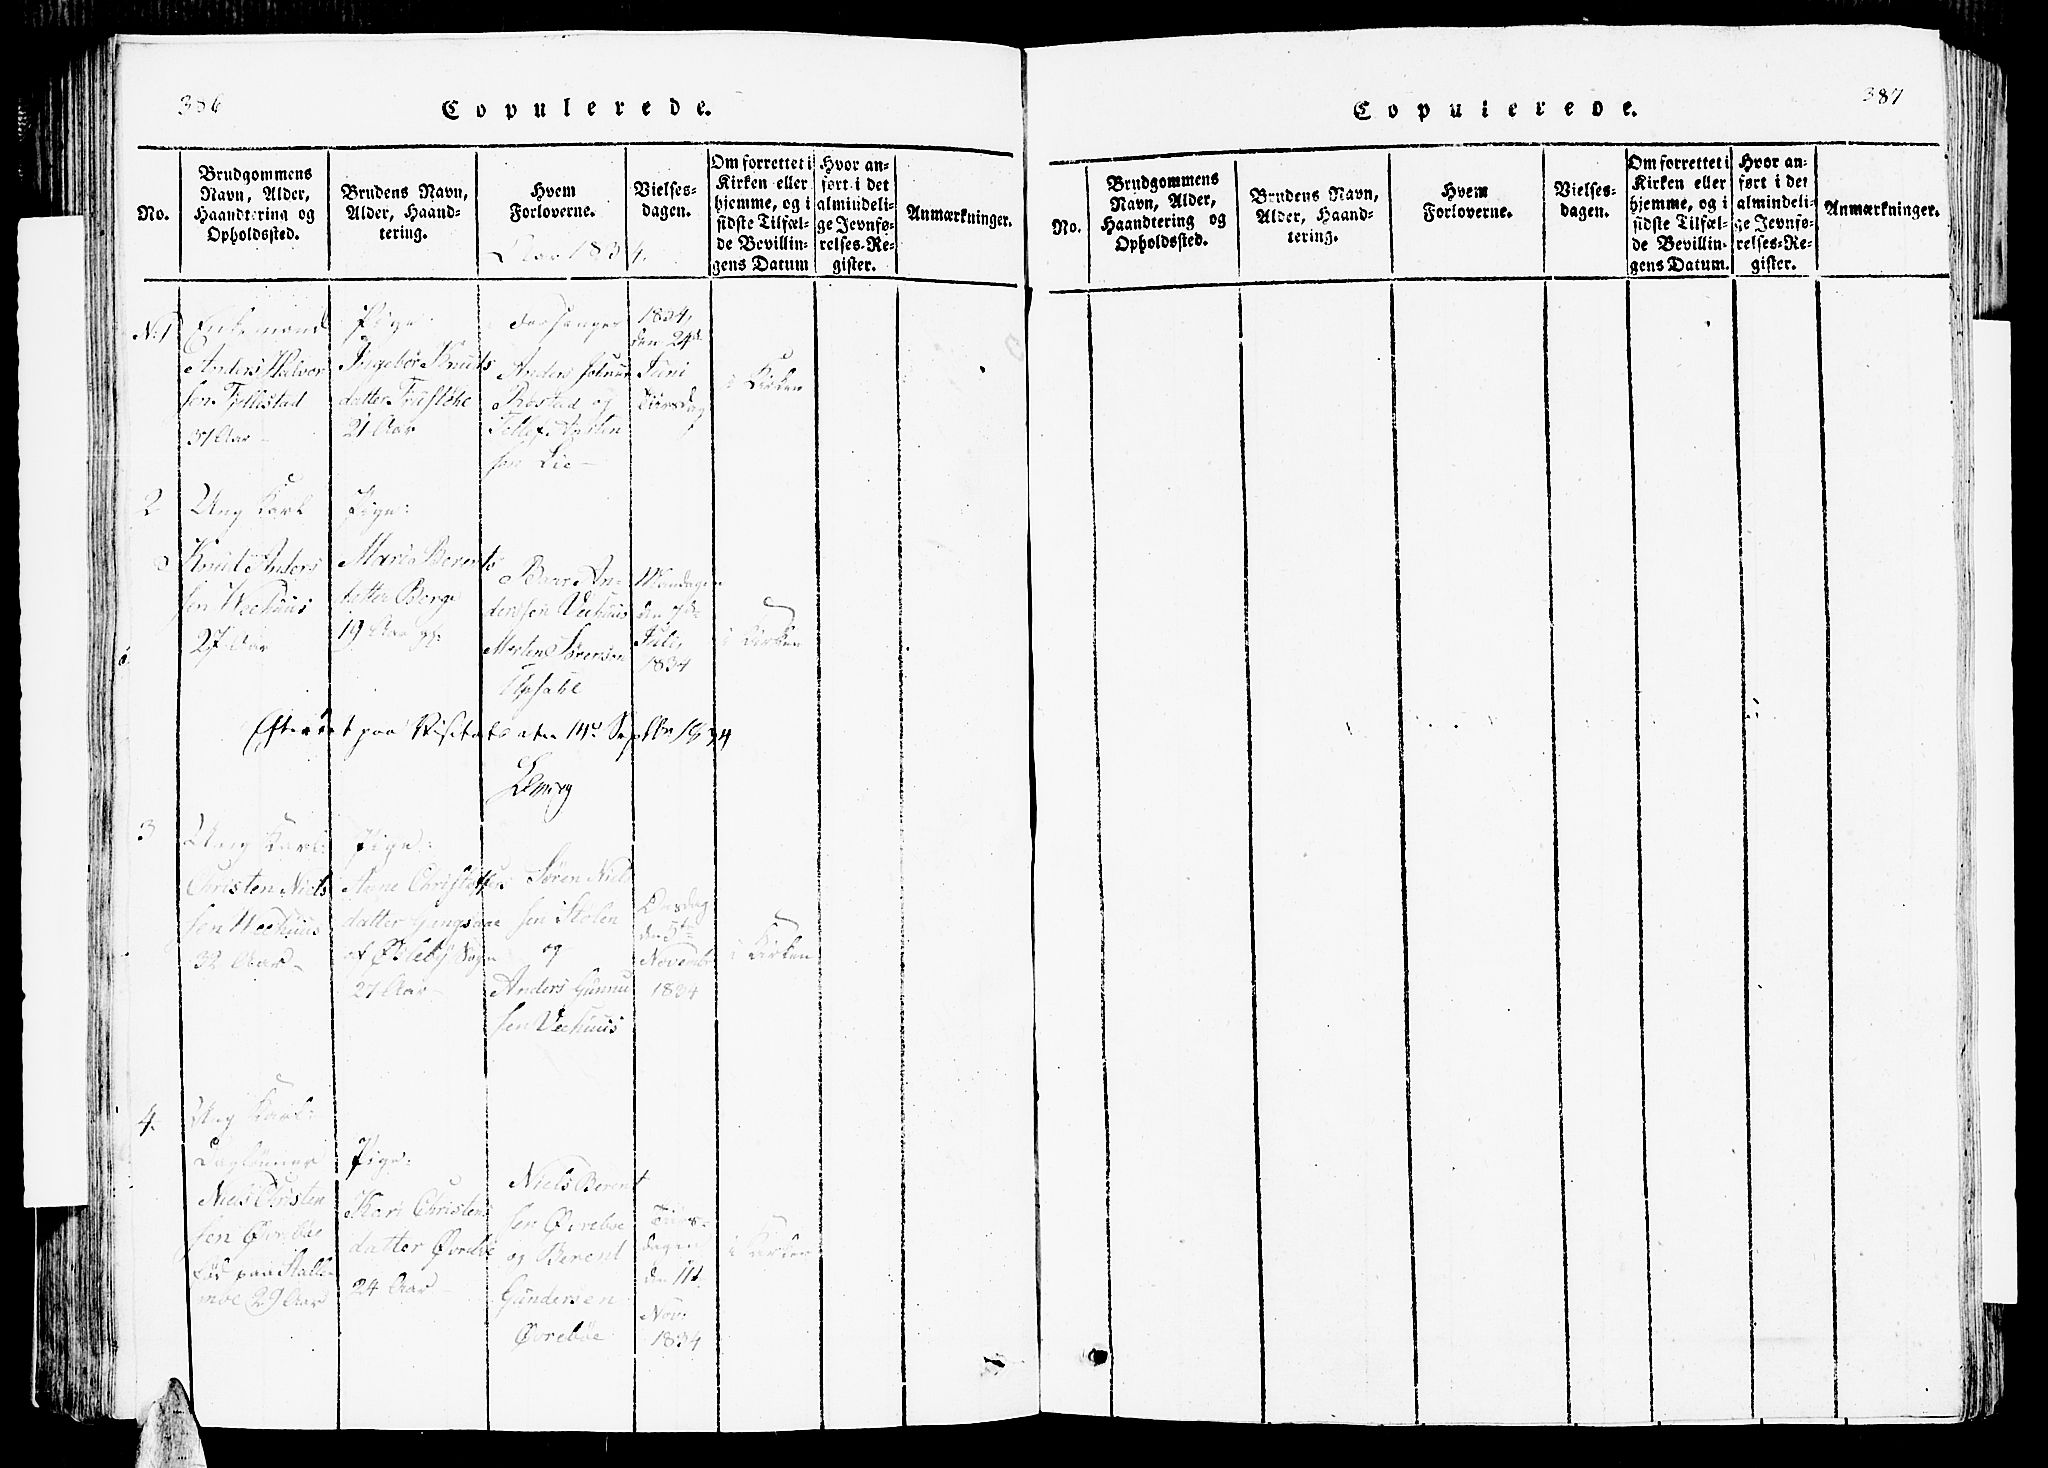 386
Copulerede.
No.
Brudgommens
Navn, Alder,
Haandtering og
Opholdssted.
Brudens Navn,
Alder, Haand-
tering.
Hvem
Forloverne.
Vielses-
dagen.
Om forrettet i
Kirken eller
hjemme, og i
sidste Tilfæl-
de Bevillin-
gens Datum
Hvor an-
ført i det
almindeli-
ge Jevnfø-
relses-Re-
gister.
Anmærkninger.
Aar 1834.
No 1
Enkemand
Anders Halvor
sen Fjellestad
37 Aar
Pige
Ingebor Knuds
datter
21 Aar
Anders
og
Tellef
sen Lie
1834,
den 24de
Juni
Tirsdag
i Kirken
2
Ung Karl
Knud Anders
sen Weehuus
27 Aar
Pige:
Maria Berents
datter Berge
19 Aar
An-
dersen Veehuus
Morten Sørensen
Upsahl
Mandagen
den 7de
Juli,
1834
i Kirken
Efterseet paa Visitats den 14d Septbr 1834
3
Ung Karl:
Christen Niels
sen Weehuus
32 Aar
Pige:
Anne Christophers
datter
af Øsleby Sogn
27 Aar
Søren Niels
sen Stølen
og
Anders Gunnu
sen Veehuus
Onsdag
den 5te
Novembr
1834
i Kirken
4.
Ung Karl:
Daglønner
Niels Christen
sen Øvrebøe
29 Aar
Pige:
Kari Christens
datter Øvrebøe
24 Aar
Niels Berent
sen Øvrebøe
og Berent
Gundersen
Øvrebøe
Tirs-
dagen
den 11te
Nov:
1834
i Kirken
387
Copulerede.
No.
Brudgommens
Navn, Alder,
Haandtering og
Opholdssted.
Brudens Navn,
Alder, Haand-
tering.
Hvem
Forloverne.
Vielses-
dagen.
Om forrettet i
Kirken eller
hjemme, og i
sidste Tilfæl-
de Bevillin-
gens Datum.
Hvor an-
ført i det
almindeli-
ge Jevnfø-
relses-Re-
gister.
Anmærkninger.